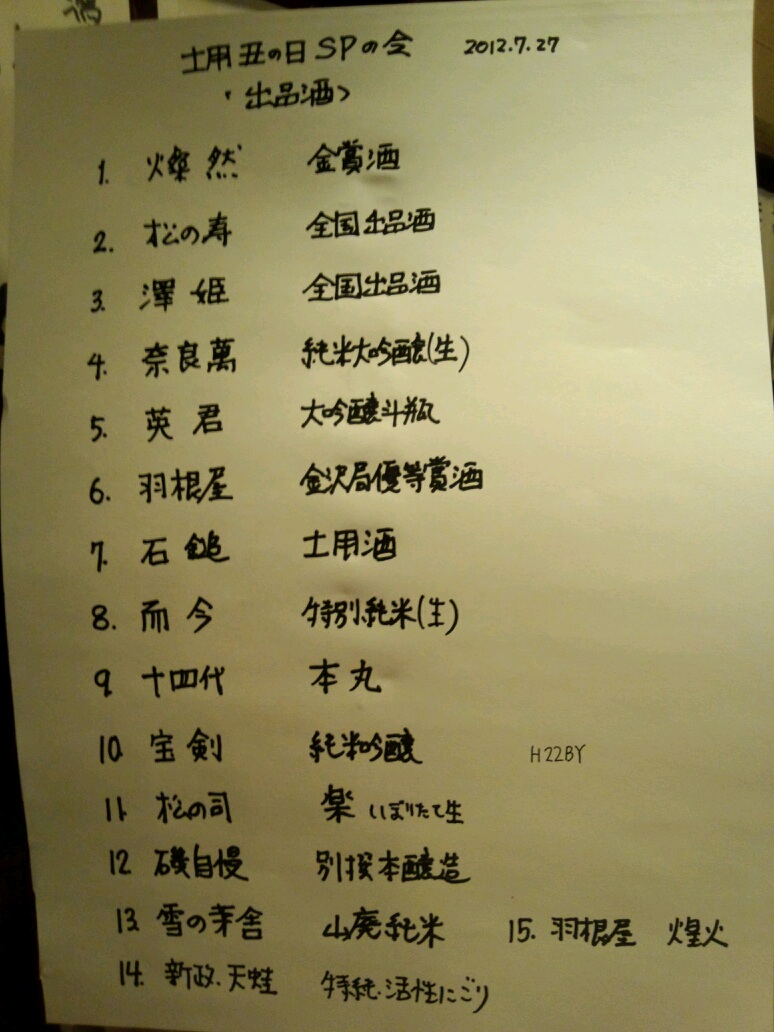 土用丑の日SPの会 2012.7.27
<出品酒>
1. 燦然 金賞酒
2. 松の寿 全国出品酒
3. 澤姫 全国出品酒
4. 奈良萬 純米大吟醸(生)
5. 英君 大吟醸斗瓶
6. 羽根屋 金沢局優等賞酒
7. 石鎚 土用酒
8. 而今 特別純米(生)
9 十四代 本丸
10. 宝剣 純米吟醸 H22BY
11. 松の司 楽 しぼりたて生
12 磯自慢 別撰本醸造
13. 雪の茅舎 山廃純米 15. 羽根屋 煌火
14. 新政.天蛙 特純.活性にごり